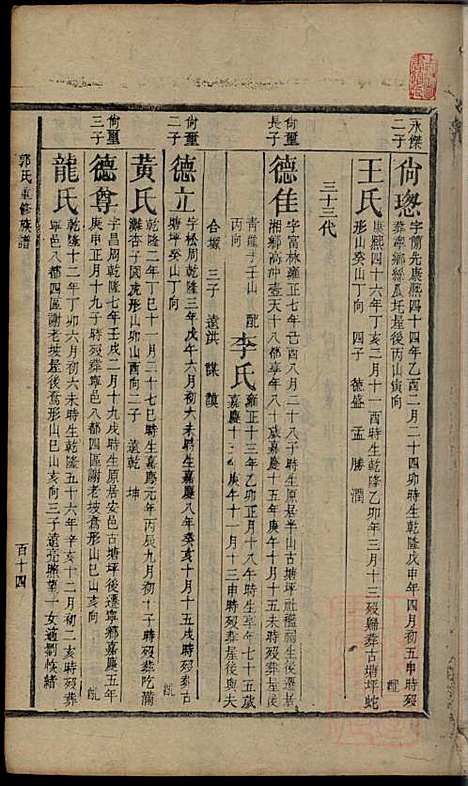 永傑
二子
尙璁
字簡先康熙四十四年乙酉二月二十四卯時生乾隆戊申年四月初五申時歿
葬寧鄉縣瓜圫屋後丙山寅向 配
王氏
康熙四十六年丁亥二月十一酉時生乾隆乙卯年三月十三歿歸葬古塘坪蛇
形山癸山丁向 四子 德盛 孟 勝 潤
三十三代
尙璽
長子
德隹
字富林雍正七年己酉八月二十八子時生原居羊山古塘坪社襤弱生後遷居
湘鄉高沖壺天十八都享年八十歲嘉慶十五年庚午十月十五未時歿葬屋後
青龍子壬山丙向 配
李氏
雍正十三年乙卯正月十八午時生享年七十五歲
嘉慶十三庚午十一月十三申時歿葬屋後與夫
合塚 三子 遠洪 謀 謨
尙璽
二子
德立
字松周乾隆三年戊午六月初六子時生嘉慶八年癸亥十月十五戌時歿葬古
塘坪癸山丁向 配
黃氏
乾隆二年丁巳十一月三十七巳時生嘉慶元年丙辰九月初十子時歿葬陀灣
灘杏子園虎形山癸山丁向 二子 遠乾 坤
尙璽
三子
德尊
字昌周乾隆七年壬戌二月十九戌時生原居安邑古塘坪後遷寧鄉嘉慶五年
庚申正月十九子時歿葬寧邑八都四區謝老坡喬形山巳山亥向 配
龍氏
乾隆十二年丁卯六月初六未時生乾隆五十六年辛亥十二月初二亥時歿葬
寧邑八都四區謝老坡屋後喬形山巳山亥向三子遠亮照箮一女適劉恢緒
郭氏重修族譜
百十四